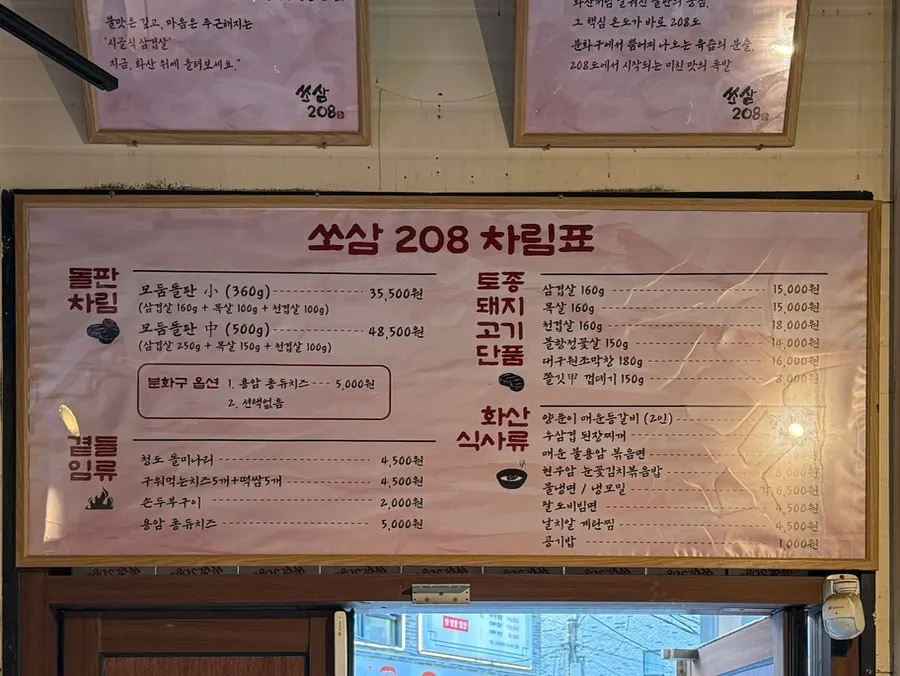 불맛은 깊고, 마음은 푸근해지는
'시골식 삼겹살'
지금, 화산 위에 올려보세요."
쏘삼
208
그 핵심 온도가 바로 208도
분화구에서 뿜어져 나오는 육즙의 분출,
208도에서 시작되는 미친 맛의 폭발
쏘삼
208
쏘삼 208 차림표
돌판
차림
모둠돌판 小 (360g) 35,500원
(삼겹살 160g + 목살 100g + 천겹살 100g)
모둠돌판 中 (500g) 48,500원
(삼겹살 250g + 목살 150g + 천겹살 100g)
분화구 옵션 1. 용암 퐁듀치즈 5,000원
2. 선택없음
곁들
임류
청도 돌미나리 4,500원
구워먹는치즈5개+떡쌈5개 4,500원
손두부구이 2,000원
용암 퐁듀치즈 5,000원
토종
돼지
고기
단품
삼겹살 160g 15,000원
목살 160g 15,000원
천겹살 160g 18,000원
불항정꽃살 150g 14,000원
대구원조막창 180g 16,000원
쫄깃甲 껍데기 150g 8,000원
화산
식사류
양푼이 매운등갈비 (2인)
우삼겹 된장찌개
매운 불용암 볶음면
현무암 눈꽃김치볶음밥
물냉면 / 냉모밀 각 6,500원
팔도비빔면 4,500원
날치알 계란찜 4,500원
공기밥 1,000원